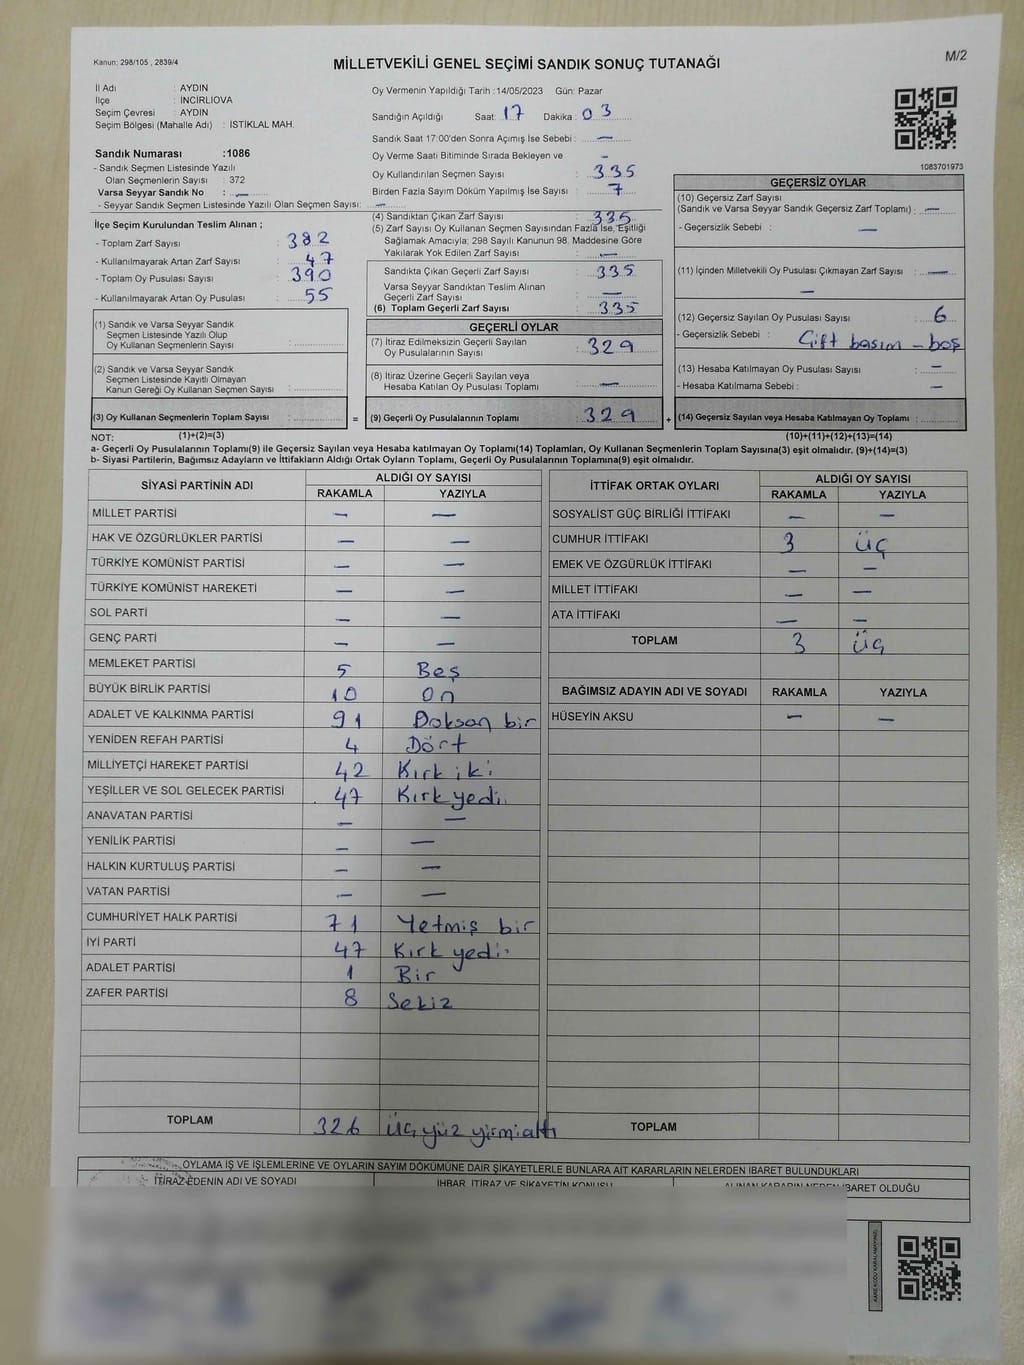 Kanun: 298/105 , 2839/4
MİLLETVEKİLİ GENEL SEÇİMİ SANDIK SONUÇ TUTANAĞI
M/2
İl Adı : AYDIN
İlçe : İNCİRLİOVA
Seçim Çevresi : AYDIN
Seçim Bölgesi (Mahalle Adı) : İSTİKLAL MAH.
Sandık Numarası :1086
- Sandık Seçmen Listesinde Yazılı
Olan Seçmenlerin Sayısı : 372
Varsa Seyyar Sandık No : —
- Seyyar Sandık Seçmen Listesinde Yazılı Olan Seçmen Sayısı: —
İlçe Seçim Kurulundan Teslim Alınan ;
- Toplam Zarf Sayısı : 382
- Kullanılmayarak Artan Zarf Sayısı : 47
- Toplam Oy Pusulası Sayısı : 390
- Kullanılmayarak Artan Oy Pusulası : 55
(1) Sandık ve Varsa Seyyar Sandık
Seçmen Listesinde Yazılı Olup
Oy Kullanan Seçmenlerin Sayısı :
(2) Sandık ve Varsa Seyyar Sandık
Seçmen Listesinde Kayıtlı Olmayan
Kanun Gereği Oy Kullanan Seçmen Sayısı :
(3) Oy Kullanan Seçmenlerin Toplam Sayısı :
(1)+(2)=(3)
Oy Vermenin Yapıldığı Tarih :14/05/2023 Gün: Pazar
Sandığın Açıldığı Saat: 17 Dakika: 03
Sandık Saat 17:00'den Sonra Açımış İse Sebebi : —
Oy Verme Saati Bitiminde Sırada Bekleyen ve
Oy Kullandırılan Seçmen Sayısı : 335
Birden Fazla Sayım Döküm Yapılmış İse Sayısı : 7
(4) Sandıktan Çıkan Zarf Sayısı : 335
(5) Zarf Sayısı Oy Kullanan Seçmen Sayısından Fazla İse, Eşitliği
Sağlamak Amacıyla; 298 Sayılı Kanunun 98. Maddesine Göre
Yakılarak Yok Edilen Zarf Sayısı : —
Sandıkta Çıkan Geçerli Zarf Sayısı : 335
Varsa Seyyar Sandıktan Teslim Alınan
Geçerli Zarf Sayısı : —
(6) Toplam Geçerli Zarf Sayısı : 335
GEÇERLİ OYLAR
(7) İtiraz Edilmeksizin Geçerli Sayılan
Oy Pusulalarının Sayısı : 329
(8) İtiraz Üzerine Geçerli Sayılan veya
Hesaba Katılan Oy Pusulası Toplamı : —
= (9) Geçerli Oy Pusulalarının Toplamı : 329 +
1083701973
GEÇERSİZ OYLAR
(10) Geçersiz Zarf Sayısı
(Sandık ve Varsa Seyyar Sandık Geçersiz Zarf Toplamı) : —
- Geçersizlik Sebebi : —
(11) İçinden Milletvekili Oy Pusulası Çıkmayan Zarf Sayısı : —
—
(12) Geçersiz Sayılan Oy Pusulası Sayısı : 6
- Geçersizlik Sebebi : Çift basım - boş
(13) Hesaba Katılmayan Oy Sayısı : —
- Hesaba Katılmama Sebebi : —
(14) Geçersiz Sayılan veya Hesaba Katılmayan Oy Toplamı :
(10)+(11)+(12)+(13)=(14)
NOT:
a- Geçerli Oy Pusulalarının Toplamı(9) ile Geçersiz Sayılan veya Hesaba katılmayan Oy Toplamı(14) Toplamları, Oy Kullanan Seçmenlerin Toplam Sayısına(3) eşit olmalıdır. (9)+(14)=(3)
b- Siyasi Partilerin, Bağımsız Adayların ve İttifakların Aldığı Ortak Oyların Toplamı, Geçerli Oy Pusulalarının Toplamına(9) eşit olmalıdır.
SİYASİ PARTİNİN ADI ALDIĞI OY SAYISI
RAKAMLA YAZIYLA
MİLLET PARTİSİ — —
HAK VE ÖZGÜRLÜKLER PARTİSİ — —
TÜRKİYE KOMÜNİST PARTİSİ — —
TÜRKİYE KOMÜNİST HAREKETİ — —
SOL PARTİ — —
GENÇ PARTİ — —
MEMLEKET PARTİSİ 5 Beş
BÜYÜK BİRLİK PARTİSİ 10 On
ADALET VE KALKINMA PARTİSİ 91 Doksan bir
YENİDEN REFAH PARTİSİ 4 Dört
MİLLİYETÇİ HAREKET PARTİSİ 42 Kırk iki
YEŞİLLER VE SOL GELECEK PARTİSİ 47 Kırk yedi
ANAVATAN PARTİSİ — —
YENİLİK PARTİSİ — —
HALKIN KURTULUŞ PARTİSİ — —
VATAN PARTİSİ — —
CUMHURİYET HALK PARTİSİ 71 Yetmiş bir
İYİ PARTİ 47 Kırk yedi
ADALET PARTİSİ 1 Bir
ZAFER PARTİSİ 8 Sekiz
TOPLAM 326 Üç yüz yirmialtı
İTTİFAK ORTAK OYLARI ALDIĞI OY SAYISI
RAKAMLA YAZIYLA
SOSYALİST GÜÇ BİRLİĞİ İTTİFAKI — —
CUMHUR İTTİFAKI 3 üç
EMEK VE ÖZGÜRLÜK İTTİFAKI — —
MİLLET İTTİFAKI — —
ATA İTTİFAKI — —
TOPLAM 3 üç
BAĞIMSIZ ADAYIN ADI VE SOYADI RAKAMLA YAZIYLA
HÜSEYİN AKSU — —
TOPLAM
OYLAMA İŞ VE İŞLEMLERİNE VE OYLARIN SAYIM DÖKÜMÜNE DAİR ŞİKAYETLERLE BUNLARA AİT KARARLARIN NELERDEN İBARET BULUNDUKLARI
İTİRAZ EDENİN ADI VE SOYADI İHBAR, İTİRAZ VE ŞİKAYETİN KONUSU ALINAN KARARIN NEDEN İBARET OLDUĞU